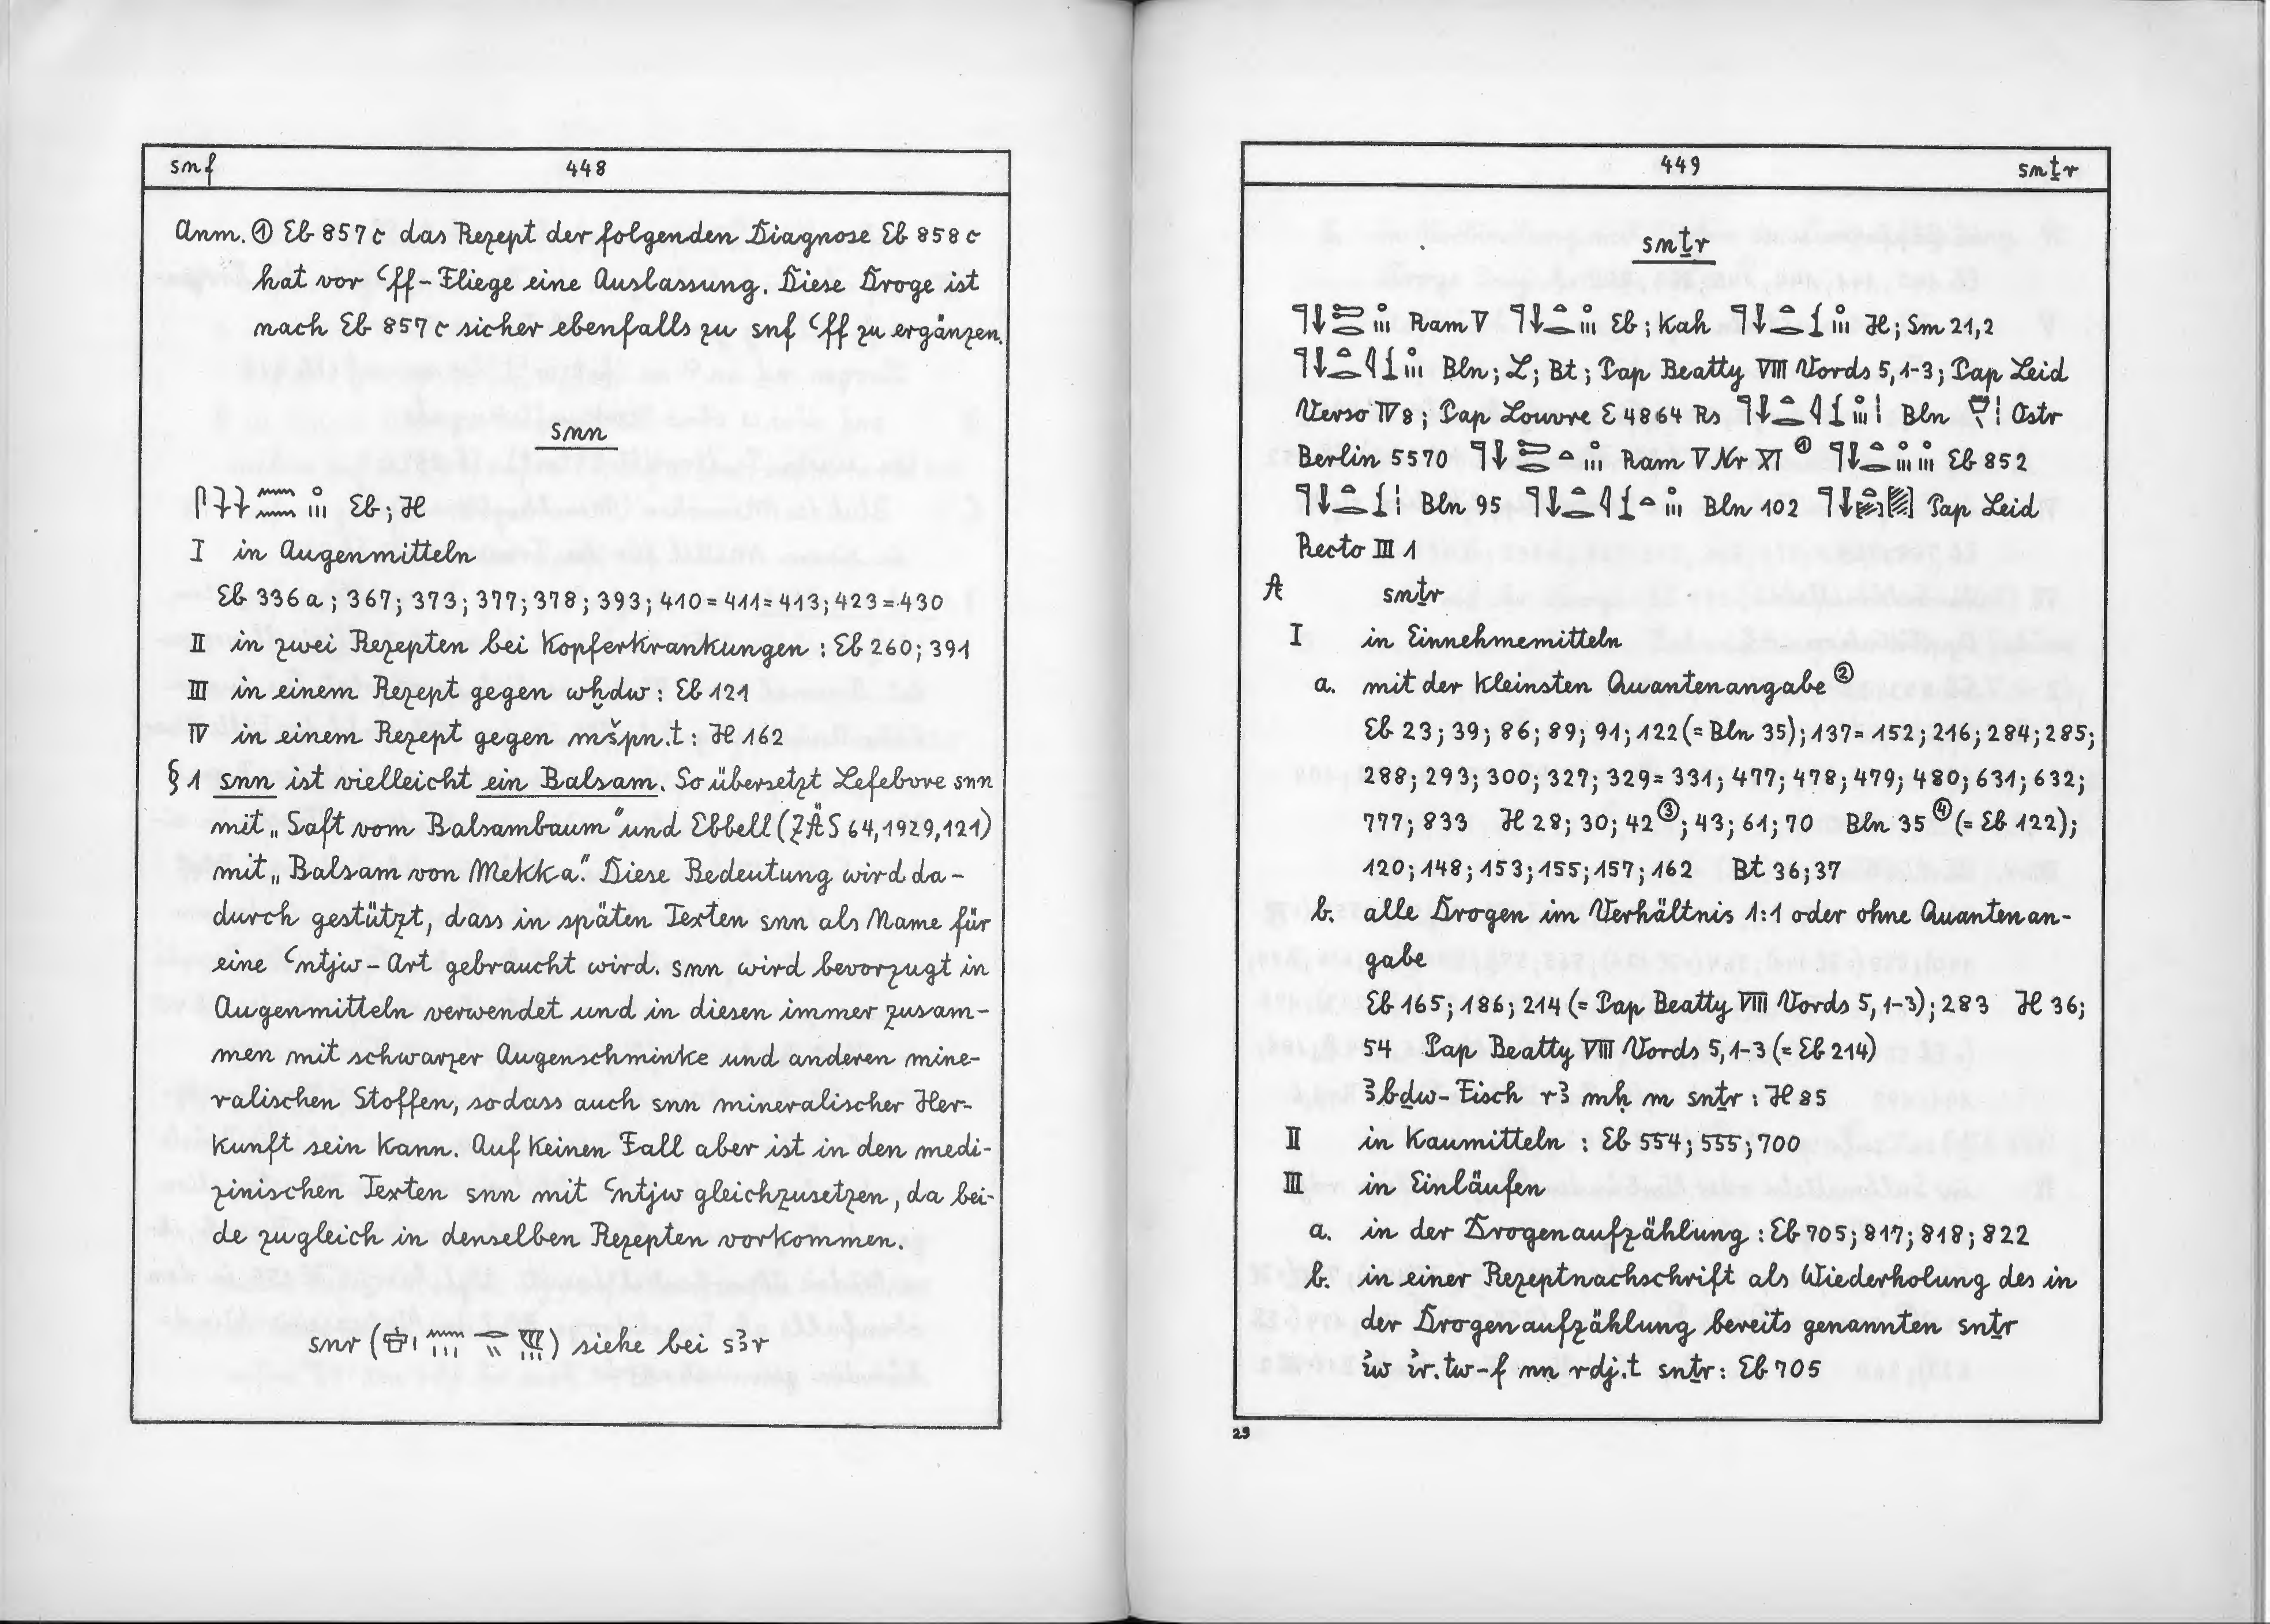 snf 448
Anm. ① Eb 857c das Rezept der folgenden Diagnose Eb 858c
hat vor ꜥff-Fliege eine Auslassung. Diese Droge ist
nach Eb 857c sicher ebenfalls zu snf ꜥff zu ergänzen.
snn
Eb; H
I in Augenmitteln
Eb 336a; 367; 373; 377; 378; 393; 410=411=413; 423=430
II in zwei Rezepten bei Kopferkrankungen: Eb 260; 391
III in einem Rezept gegen wḫdw: Eb 121
IV in einem Rezept gegen mšpn.t: H 162
§1 snn ist vielleicht ein Balsam. So übersetzt Lefebvre snn
mit „Saft vom Balsambaum" und Ebbell (ZÄS 64,1929,121)
mit „Balsam von Mekka." Diese Bedeutung wird da-
durch gestützt, dass in späten Texten snn als Name für
eine ꜥntjw-Art gebraucht wird. snn wird bevorzugt in
Augenmitteln verwendet und in diesen immer zusam-
men mit schwarzer Augenschminke und anderen mine-
ralischen Stoffen, sodass auch snn mineralischer Her-
kunft sein kann. Auf keinen Fall aber ist in den medi-
zinischen Texten snn mit ꜥntjw gleichzusetzen, da bei-
de zugleich in denselben Rezepten vorkommen.
snr ( ) siehe bei sꜣr
449 snṯr
snṯr
Ram V Eb; Kah H; Sm 21,2
Bln; L; Bt; Pap Beatty VIII Vords 5,1-3; Pap Leid
Verso IV 8; Pap Louvre E 4864 Rs Bln Ostr
Berlin 5570 Ram V Nr XI ① Eb 852
Bln 95 Bln 102 Pap Leid
Recto III 1
A snṯr
I in Einnehmemitteln
a. mit der kleinsten Quantenangabe ②
Eb 23; 39; 86; 89; 91; 122 (= Bln 35); 137=152; 216; 284; 285;
288; 293; 300; 327; 329=331; 477; 478; 479; 480; 631; 632;
777; 833 H 28; 30; 42 ③; 43; 61; 70 Bln 35 ④ (= Eb 122);
120; 148; 153; 155; 157; 162 Bt 36; 37
b. alle Drogen im Verhältnis 1:1 oder ohne Quantenan-
gabe
Eb 165; 186; 214 (= Pap Beatty VIII Vords 5,1-3); 283 H 36;
54 Pap Beatty VIII Vords 5,1-3 (= Eb 214)
ꜣbḏw-Fisch rꜣ mḥ m snṯr: H 85
II in Kaumitteln: Eb 554; 555; 700
III in Einläufen
a. in der Drogenaufzählung: Eb 705; 817; 818; 822
b. in einer Rezeptnachschrift als Wiederholung des in
der Drogenaufzählung bereits genannten snṯr
ꞽw ꞽr.tw-f nn rdj.t snṯr: Eb 705
29